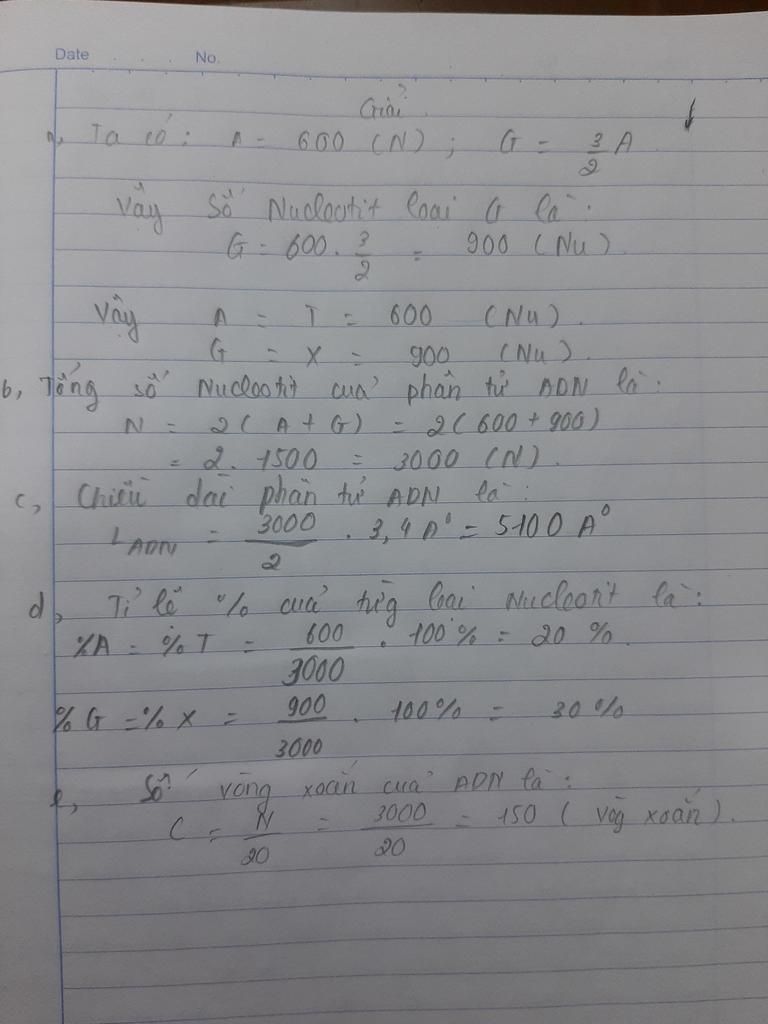 Date . . . No.
Giải
a, Ta có: A = 600 (N) ; G = 3/2 A
Vậy Số Nucleotit loại G là:
G = 600 . 3/2 = 900 (Nu)
Vậy A = T = 600 (Nu).
G = X = 900 (Nu).
b, Tổng số Nucleotit của phân tử ADN là:
N = 2( A + G) = 2(600 + 900)
= 2. 1500 = 3000 (N).
c, Chiều dài phân tử ADN là:
L ADN = 3000/2 . 3,4 A° = 5100 A°
d, Tỉ lệ % của từg loại Nucleotit là:
%A = % T = 600/3000 . 100% = 20 %.
% G = % X = 900/3000 . 100% = 30 %
e, Số vòng xoắn của ADN là:
C = N/20 = 3000/20 = 150 ( vòg xoắn).